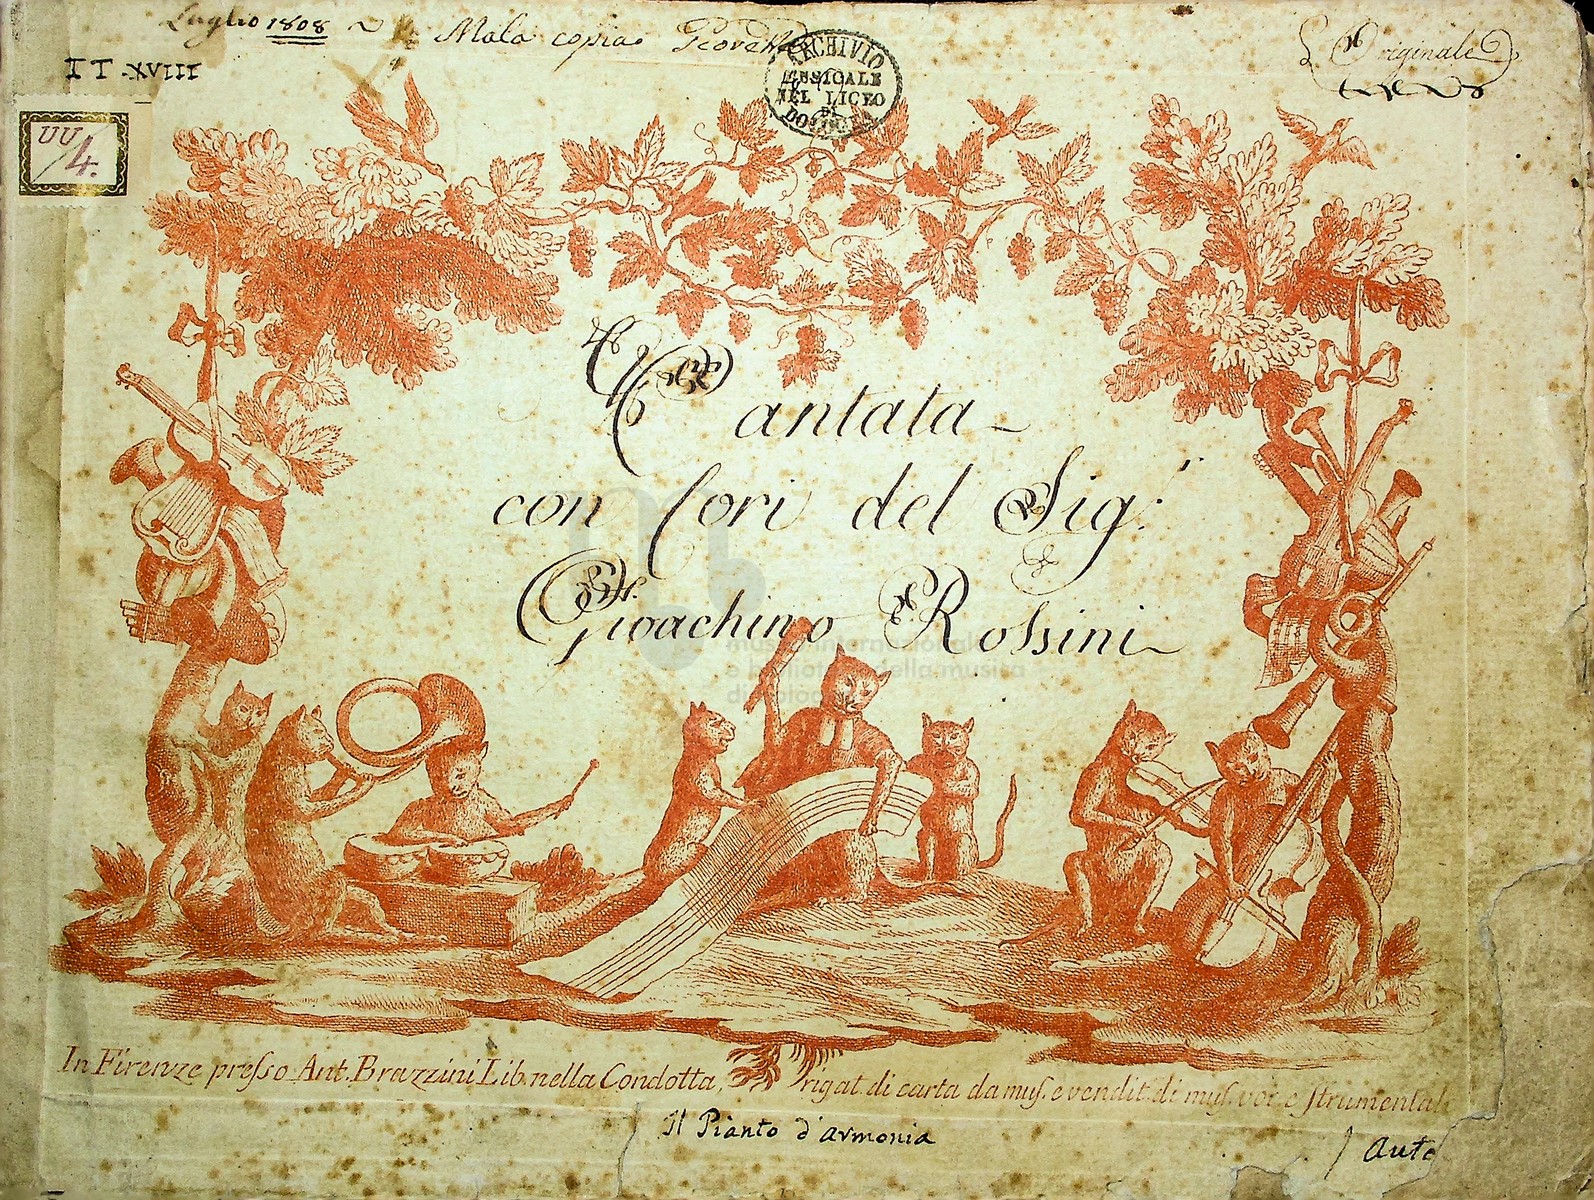 Luglio 1808
Mala copia
L'Originale
TT-XVIII
UU/4.
ARCHIVIO
MUSICALE
NEL LICEO
DI
BOLOGNA
Cantata
con Cori del Sig.r
Gioachino Rossini
museo internazionale
e biblioteca della musica
di bologna
In Firenze presso Ant. Brazzini Lib. nella Condotta, rigat. di carta da mus. e vendit. di mus. voc. e strumentale
Il Pianto d'Armonia
Auto